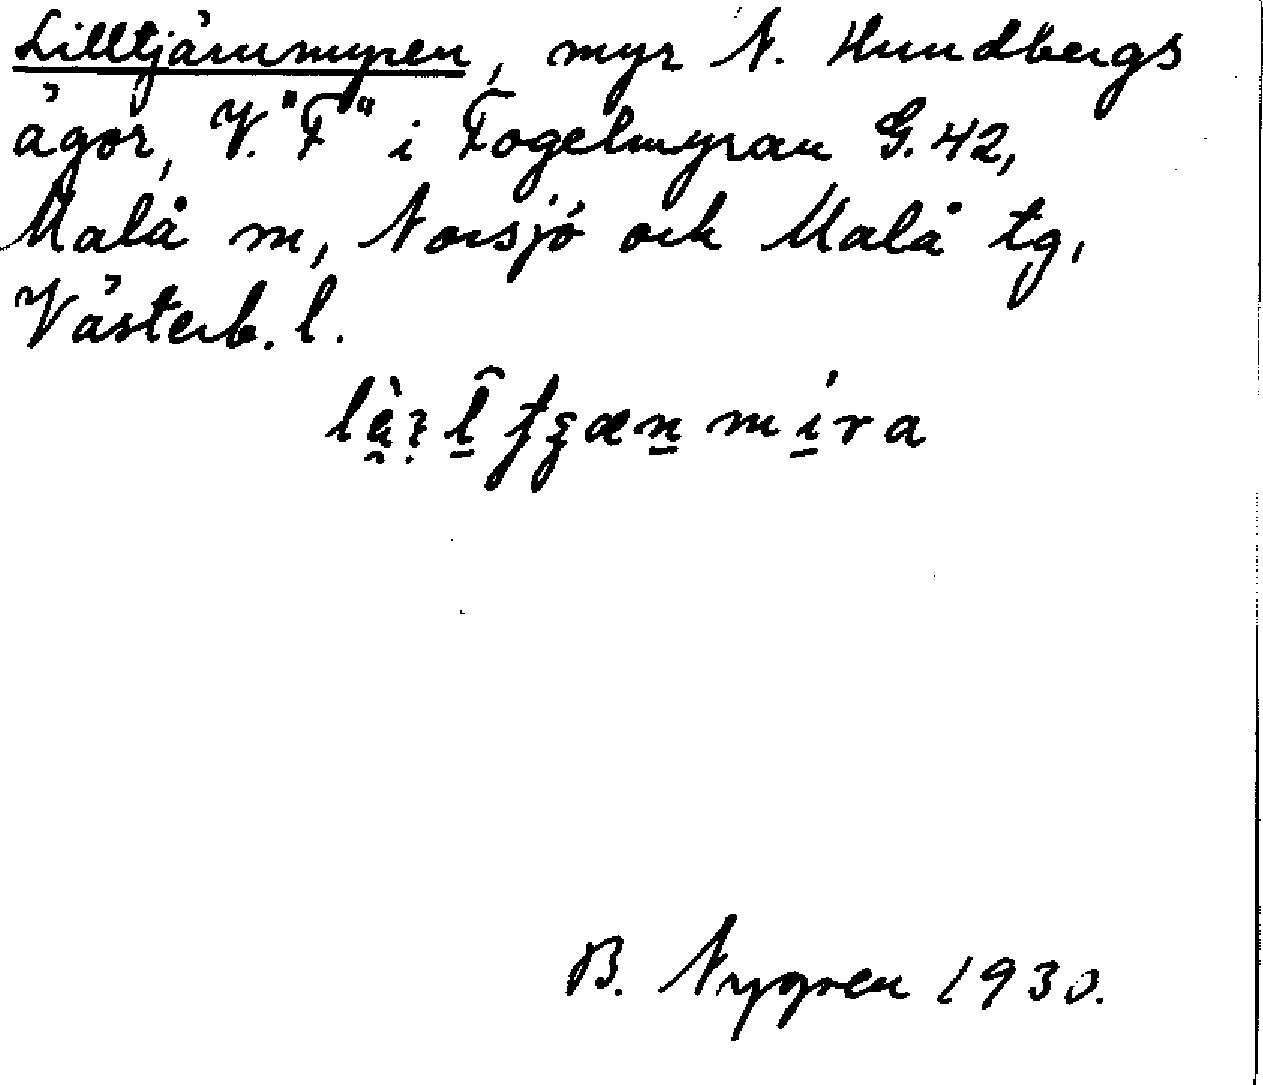 Lilltjärnmyren, myr N. Hundbergs
ägor, V. "F" i Fogelmyran G. 42,
Malå sn, Norsjö och Malå tg,
Västerb. l.
B. Nygren 1930.